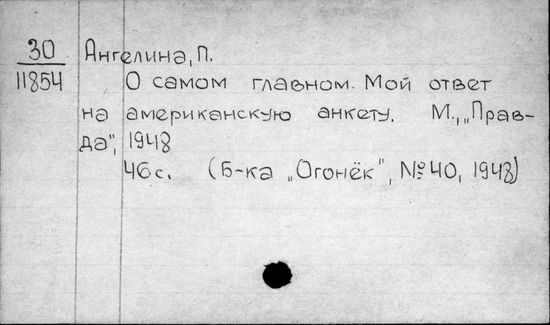 30 Ангелина, П.
11854 О самом главном. Мой ответ
на американскую анкету. М., „Прав-
да", 1948
46 с. (Б-ка „Огонёк", № 40, 1948)